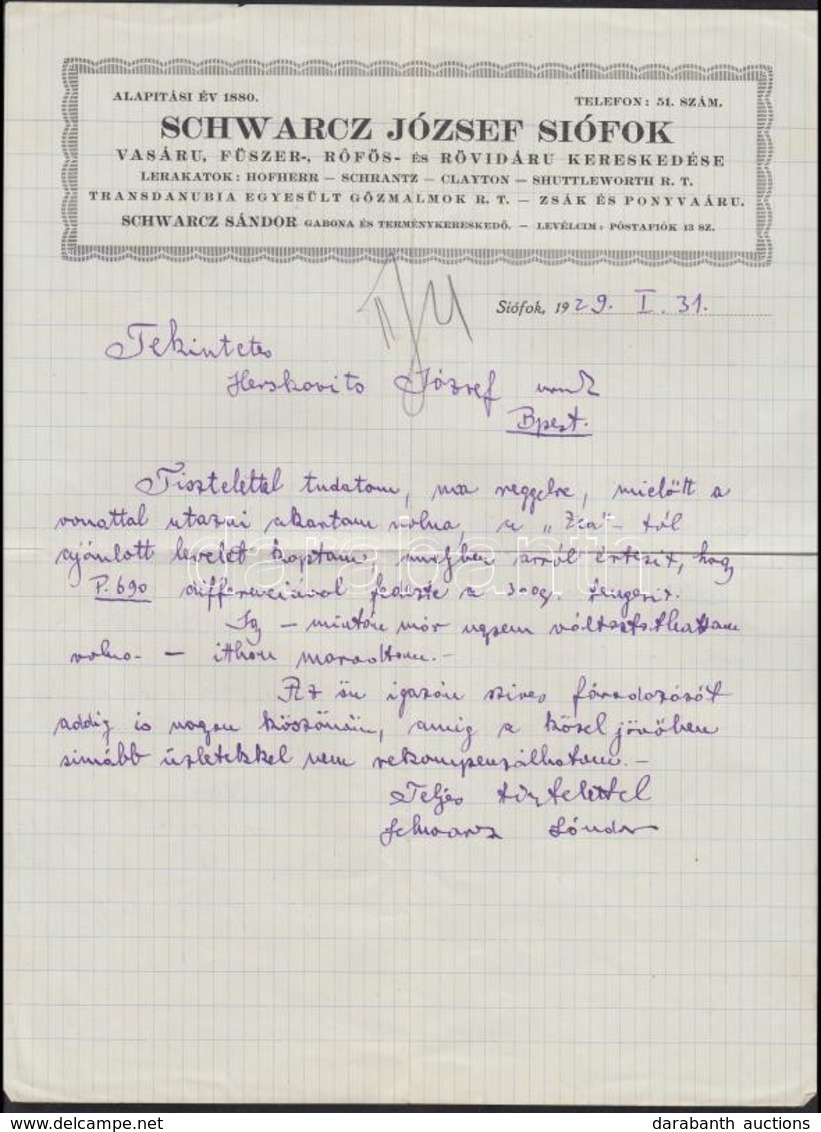 ALAPITÁSI ÉV 1880. TELEFON: 51. SZÁM.
SCHWARCZ JÓZSEF SIÓFOK
VASÁRU, FÜSZER-, RÔFÖS- ÉS RÖVIDÁRU KERESKEDÉSE
LERAKATOK: HOFHERR — SCHRANTZ — CLAYTON — SHUTTLEWORTH R. T.
TRANSDANUBIA EGYESÜLT GÖZMALMOK R. T. — ZSÁK ÉS PONYVAÁRU.
SCHWARCZ SÁNDOR GABONA ÉS TERMÉNYKERESKEDŐ. — LEVÉLCIM: PÓSTAFIÓK 13 SZ.
Siófok, 1929. I. 31.
Tekintetes
Herskovits József
Bpest.
Tisztelettel tudatom, ma reggelre, mielőtt a
vonattal utazni akartam volna, a -tól
ajánlott levelet kaptam, melyben arról értesit, hogy
P. 690 differenciával fedezte a
Igy – miután már ugysem változtathattam
volna – itthon maradtam. –
Az ön igazán szives fáradozását
addig is nagyon köszönöm, amig a közel jövőben
simább üzletekkel nem rekompenzálhatom. –
Teljes tisztelettel
Schwarcz Sándor
darabanth
darabanth auctions